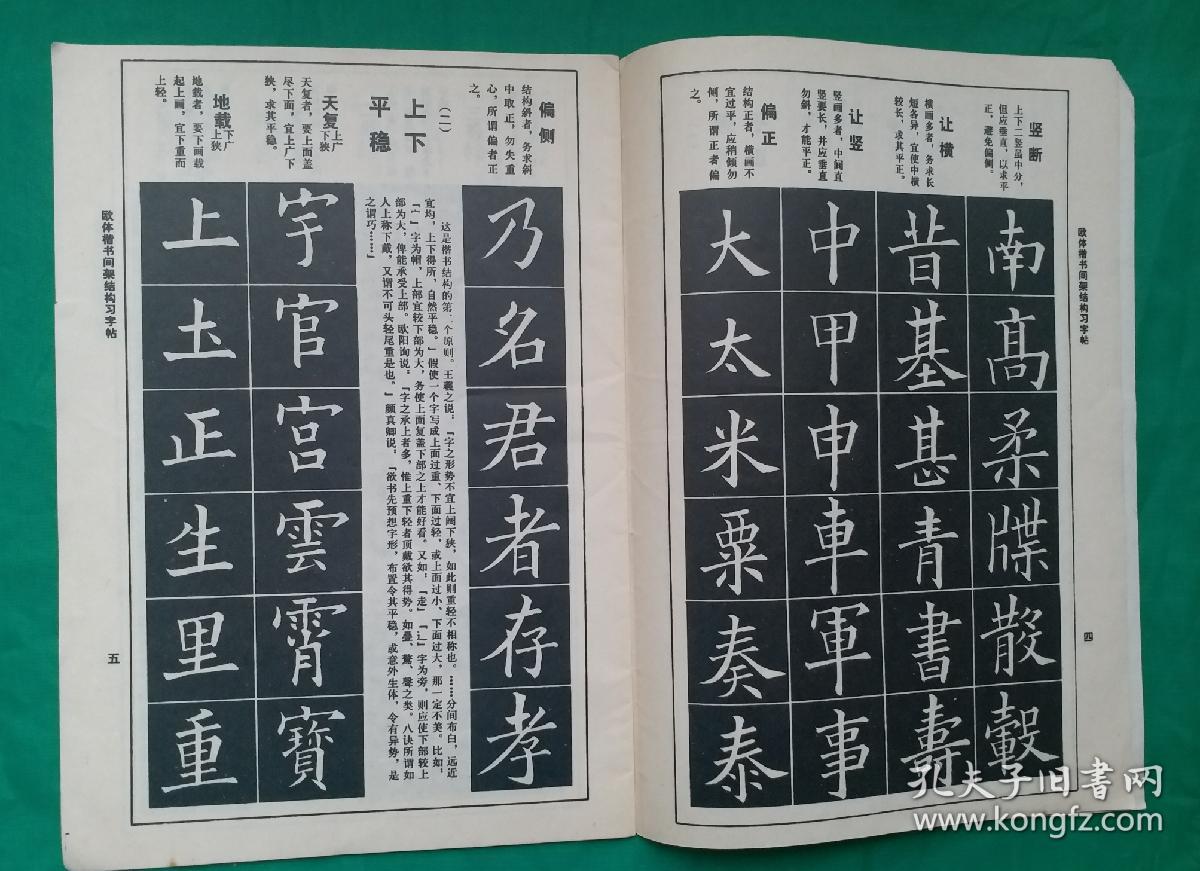 欧体楷书间架结构习字帖
四
竖断
上下二竖虽中分，
但应垂直，以求平
正，避免偏侧。
南
高
柔
牒
散
轂
让横
横画多者，务求长
短各异，宜使中横
较长，求其平正。
昔
基
甚
青
書
壽
让竖
竖画多者，中间直
竖要长，并应垂直
勿斜，才能平正。
中
甲
申
車
軍
事
偏正
结构正者，横画不
宜过平，应稍倾勿
侧，所谓正者偏
之。
大
太
米
粟
奏
泰
偏侧
结构斜者，务求斜
中取正，勿失重
心，所谓偏者正
之。
乃
名
君
者
存
孝
（二）
上下
平稳
这是楷书结构的第二个原则。王羲之说：「字之形势不宜上阔下狭，如此则重轻不相称也。……分间布白，远近
宜均，上下得所，自然平稳。」假使一个字写成上面过重、下面过轻，或上面过小、下面过大，那一定不美。比如：
「宀」字为帽，上部宜较下部为大，务使上面复盖下部之上才能好看。又如：「走」「辶」字为旁，则应使下部较上
部为大，俾能承受上部。欧阳询说：「字之承上者多，惟上重下轻者顶戴欲其得势。如疊、鶩、聲之类。八诀所谓如
人上称下戴，又谓不可头轻尾重是也。」颜真卿说：「欲书先预想字形，布置令其平稳，或意外生体，令有异势，是
之谓巧……」
天复上广下狭
天复者，要上面盖
尽下面，宜上广下
狭，求其平稳。
宇
官
宮
雲
霄
寶
地载下广上狭
地载者，要下画载
起上画，宜下重而
上轻。
上
土
正
生
里
重
欧体楷书间架结构习字帖
五
孔夫子旧书网
www.kongfz.com